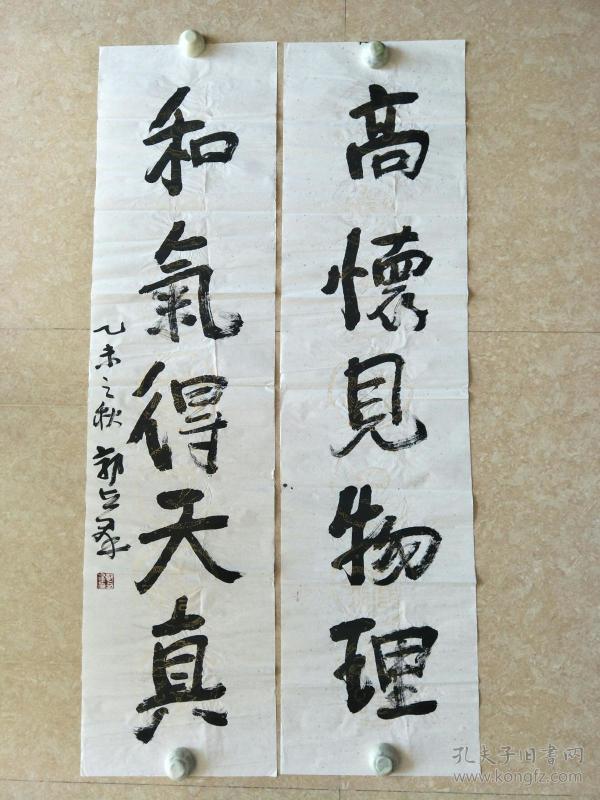 高懷見物理
和氣得天真
乙未之秋 郭
孔夫子旧书网
www.kongfz.com